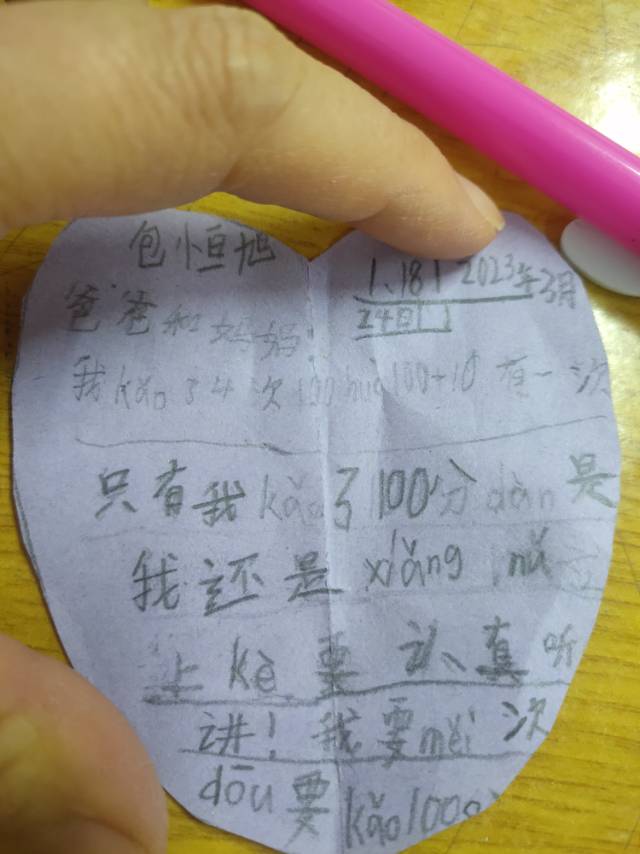 包恒旭
1.18 2023年3月
24日
爸爸和妈妈:
我kǎo了4次100 huò 100+10 有一次
只有我kǎo了100分dàn是
我还是xiǎng nǔ
上kè要认真听
讲!我要měi次
dōu要kǎo100分